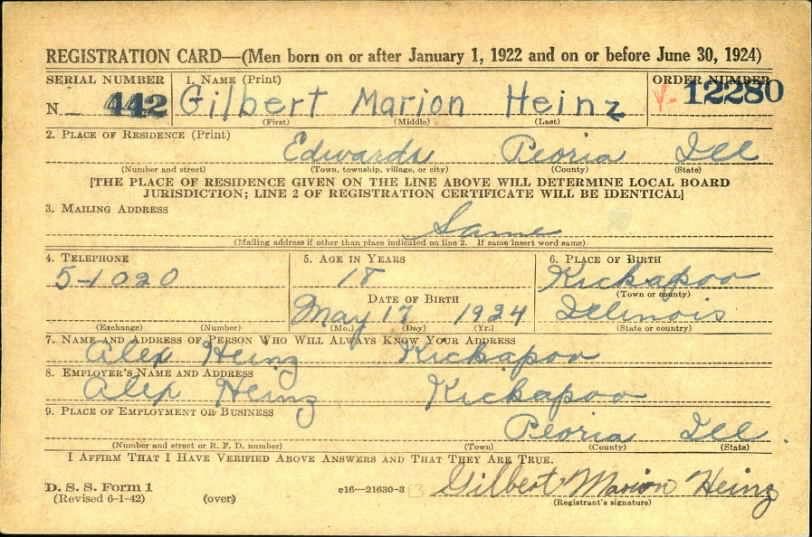 REGISTRATION CARD—(Men born on or after January 1, 1922 and on or before June 30, 1924)
SERIAL NUMBER 1. NAME (Print) ORDER NUMBER
N 442 Gilbert Marion Heinz V- 12280
(First) (Middle) (Last)
2. PLACE OF RESIDENCE (Print)
Edwards Peoria Ill
(Number and street) (Town, township, village, or city) (County) (State)
[THE PLACE OF RESIDENCE GIVEN ON THE LINE ABOVE WILL DETERMINE LOCAL BOARD
JURISDICTION; LINE 2 OF REGISTRATION CERTIFICATE WILL BE IDENTICAL]
3. MAILING ADDRESS
Same
(Mailing address if other than place indicated on line 2. If same insert word same)
4. TELEPHONE 5. AGE IN YEARS 6. PLACE OF BIRTH
5-1020 18 Kickapoo
(Town or county)
DATE OF BIRTH
May 17 1924 Illinois
(Exchange) (Number) (Mo.) (Day) (Yr.) (State or country)
7. NAME AND ADDRESS OF PERSON WHO WILL ALWAYS KNOW YOUR ADDRESS
Alex Heinz Kickapoo
8. EMPLOYER'S NAME AND ADDRESS
Alex Heinz Kickapoo
9. PLACE OF EMPLOYMENT OR BUSINESS
Peoria Ill.
(Number and street or R. F. D. number) (Town) (County) (State)
I AFFIRM THAT I HAVE VERIFIED ABOVE ANSWERS AND THAT THEY ARE TRUE.
D. S. S. Form 1
(Revised 6-1-42) (over) c16—21630-3 Gilbert Marion Heinz
(Registrant's signature)